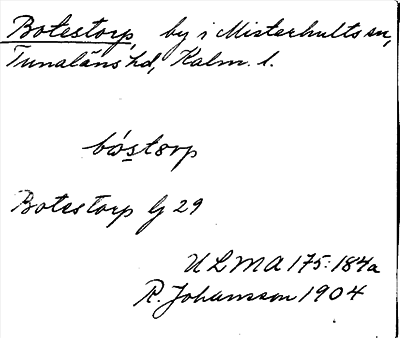 Botestorp, by i Misterhults sn,
Tunaläns hd, Kalm. l.
bó̀storp
Botestorp G 29
ULMA 175:184a
R. Johansson 1904